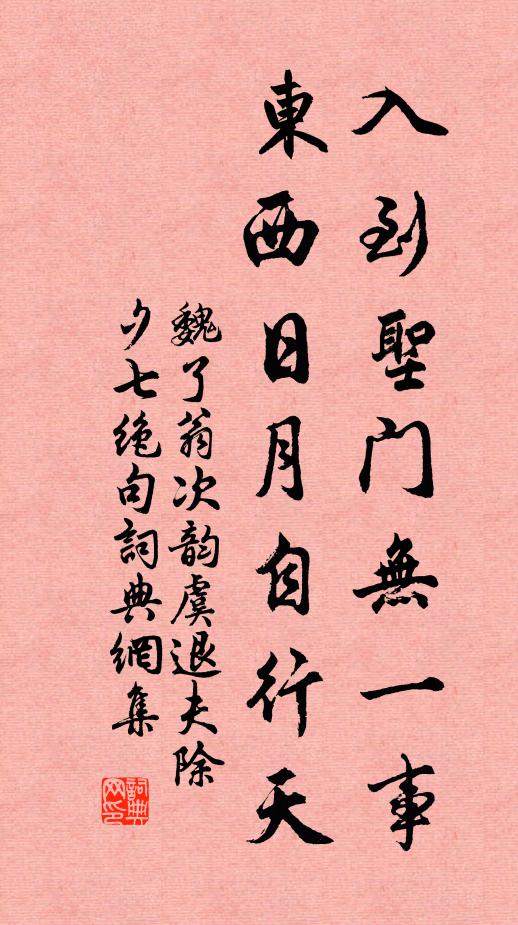 入到聖門無一事
東西日月自行天
魏了翁次韵虞退夫除
夕七绝句詞典網集
詞典
网印